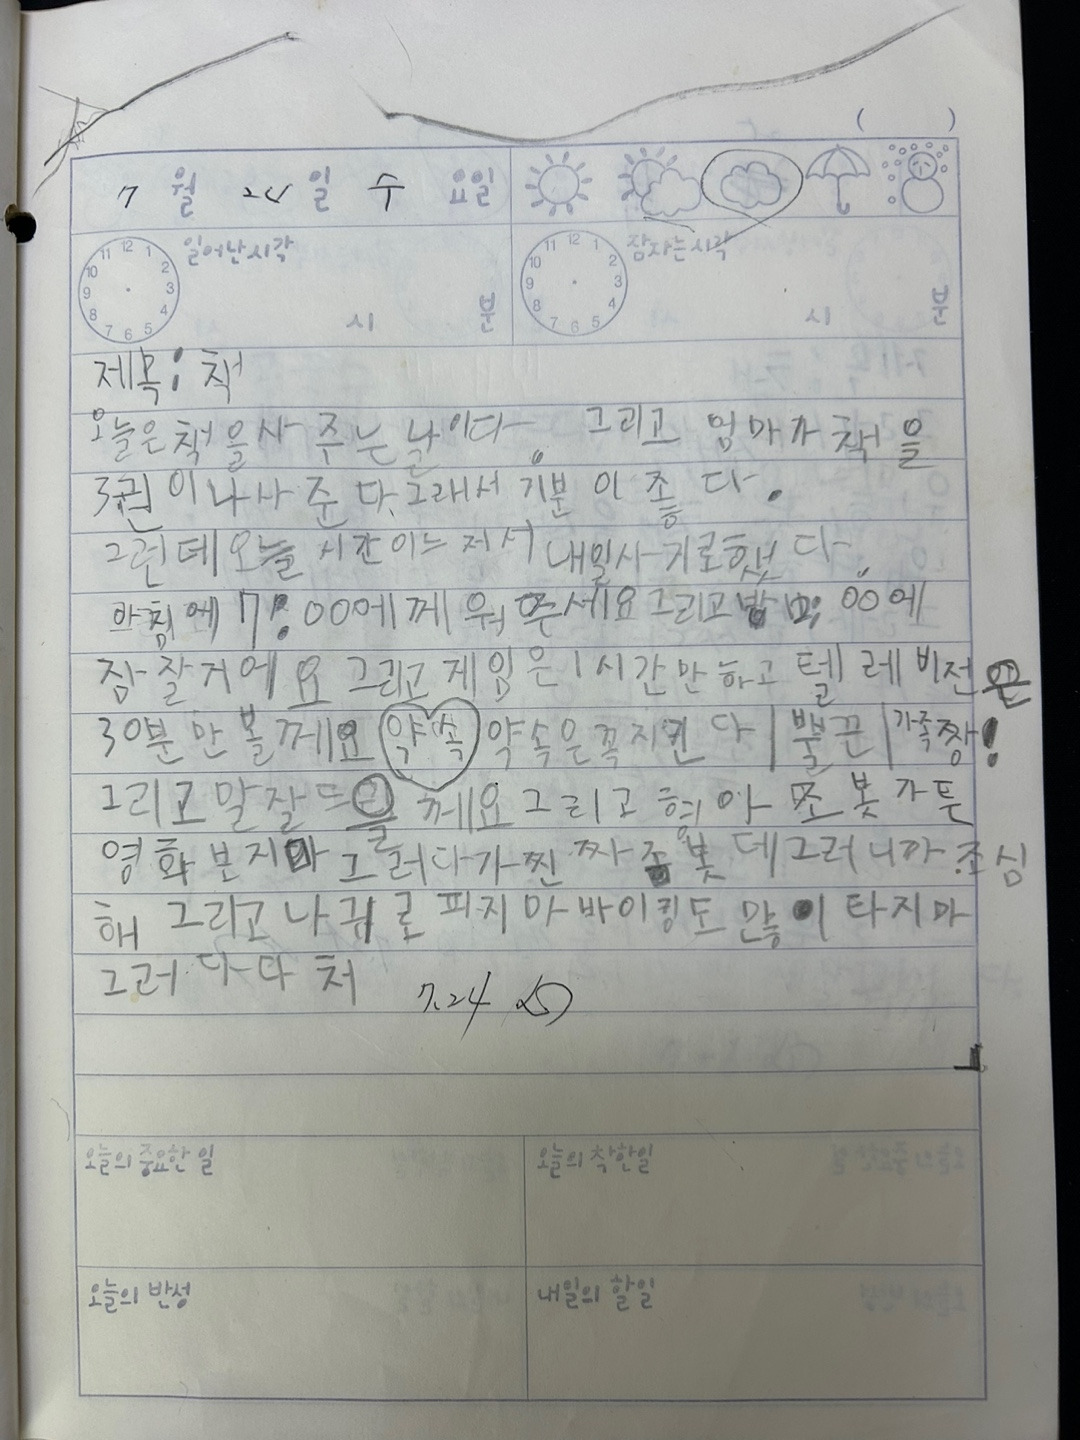 ( )
7 월 24 일 수 요일
일어난시각 시 분
잠자는시각 시 분
제목: 책
오늘은책을사 주는 날이다. 그리고 엄마가 책을
3권이나사 준다.그래서 기분이 좋다.
그런데오늘 시간이느저서 내일사기로했다.
아침에 7:00에께워주세요그리고밤 :00에
잠잘거에요 그리고게임은1시간만하고 텔레비전은
30분만볼께요 약속 약속은꼭지킨다 뿔끈 가족짱!
그리고말잘뜨를께요그리고형아 쪼봇가튼
영화본지마 그러다가찐짜 봇데그러니까조심
해 그리고나귀로피지마바이킹도 만이타지마
그러다다처
7.24
오늘의 중요한 일
오늘의 착한일
오늘의 반성
내일의 할일